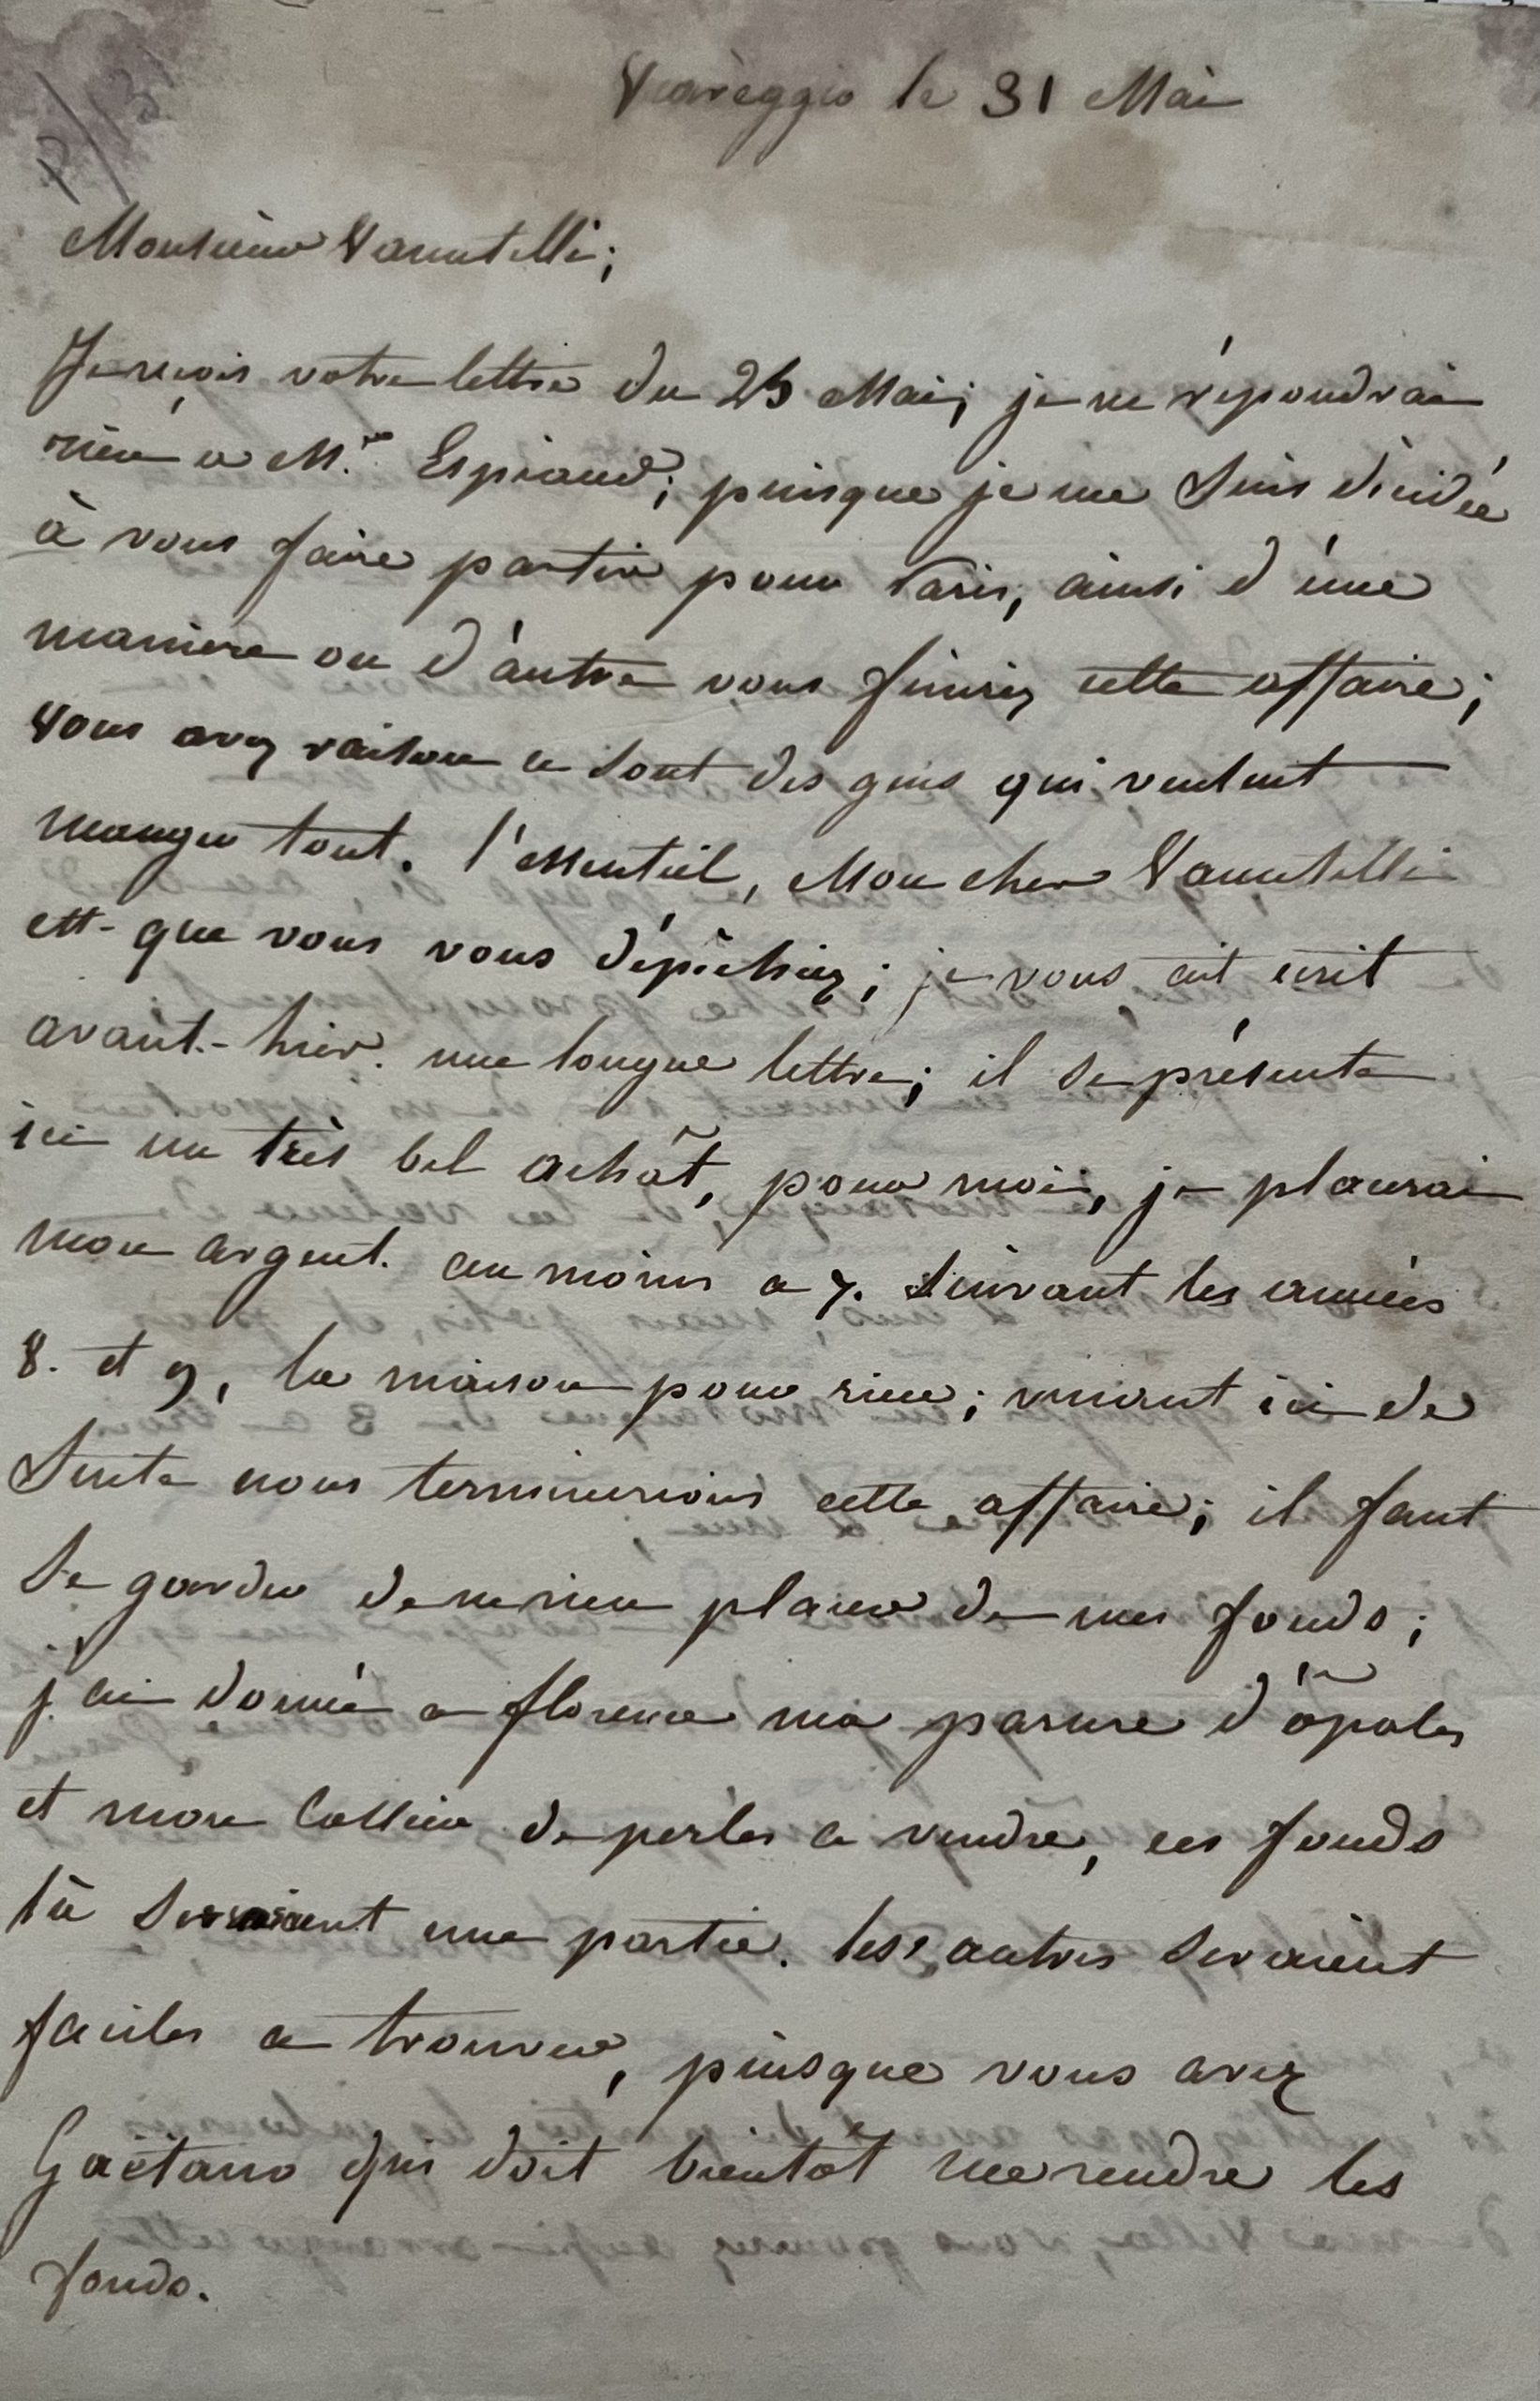 Viareggio le 31 Mai
Monsieur Vannutelli;
Je reçois votre lettre du 25 Mai; je ne répondrai
rien a M.r Espiaud; puisque je me suis décidée
à vous faire partir pour Paris, ainsi d'une
maniere ou d'autre vous finirez cette affaire;
vous avez raison ce sont des gens qui veulent
manger tout. l'essentiel, Mon cher Vannutelli
est-que vous vous dépêchiez; je vous ait ecrit
avant-hier. une longue lettre; il se présente
ici un très bel achât, pour moi, je placerai
mon argent. au moins a 7. suivant les années
8. et 9, la maison pour rien; venant ici de
suite nous terminerions cette affaire; il faut
se garder de ne rien placer de mes fonds;
j'ai donné a florence ma parure d'opales
et mon Collier de perles a vendre, ces fonds
là seraient une partie. les autres seraient
faciles a trouver, puisque vous avez
Gaëtano qui doit bientôt me rendre les
fonds.